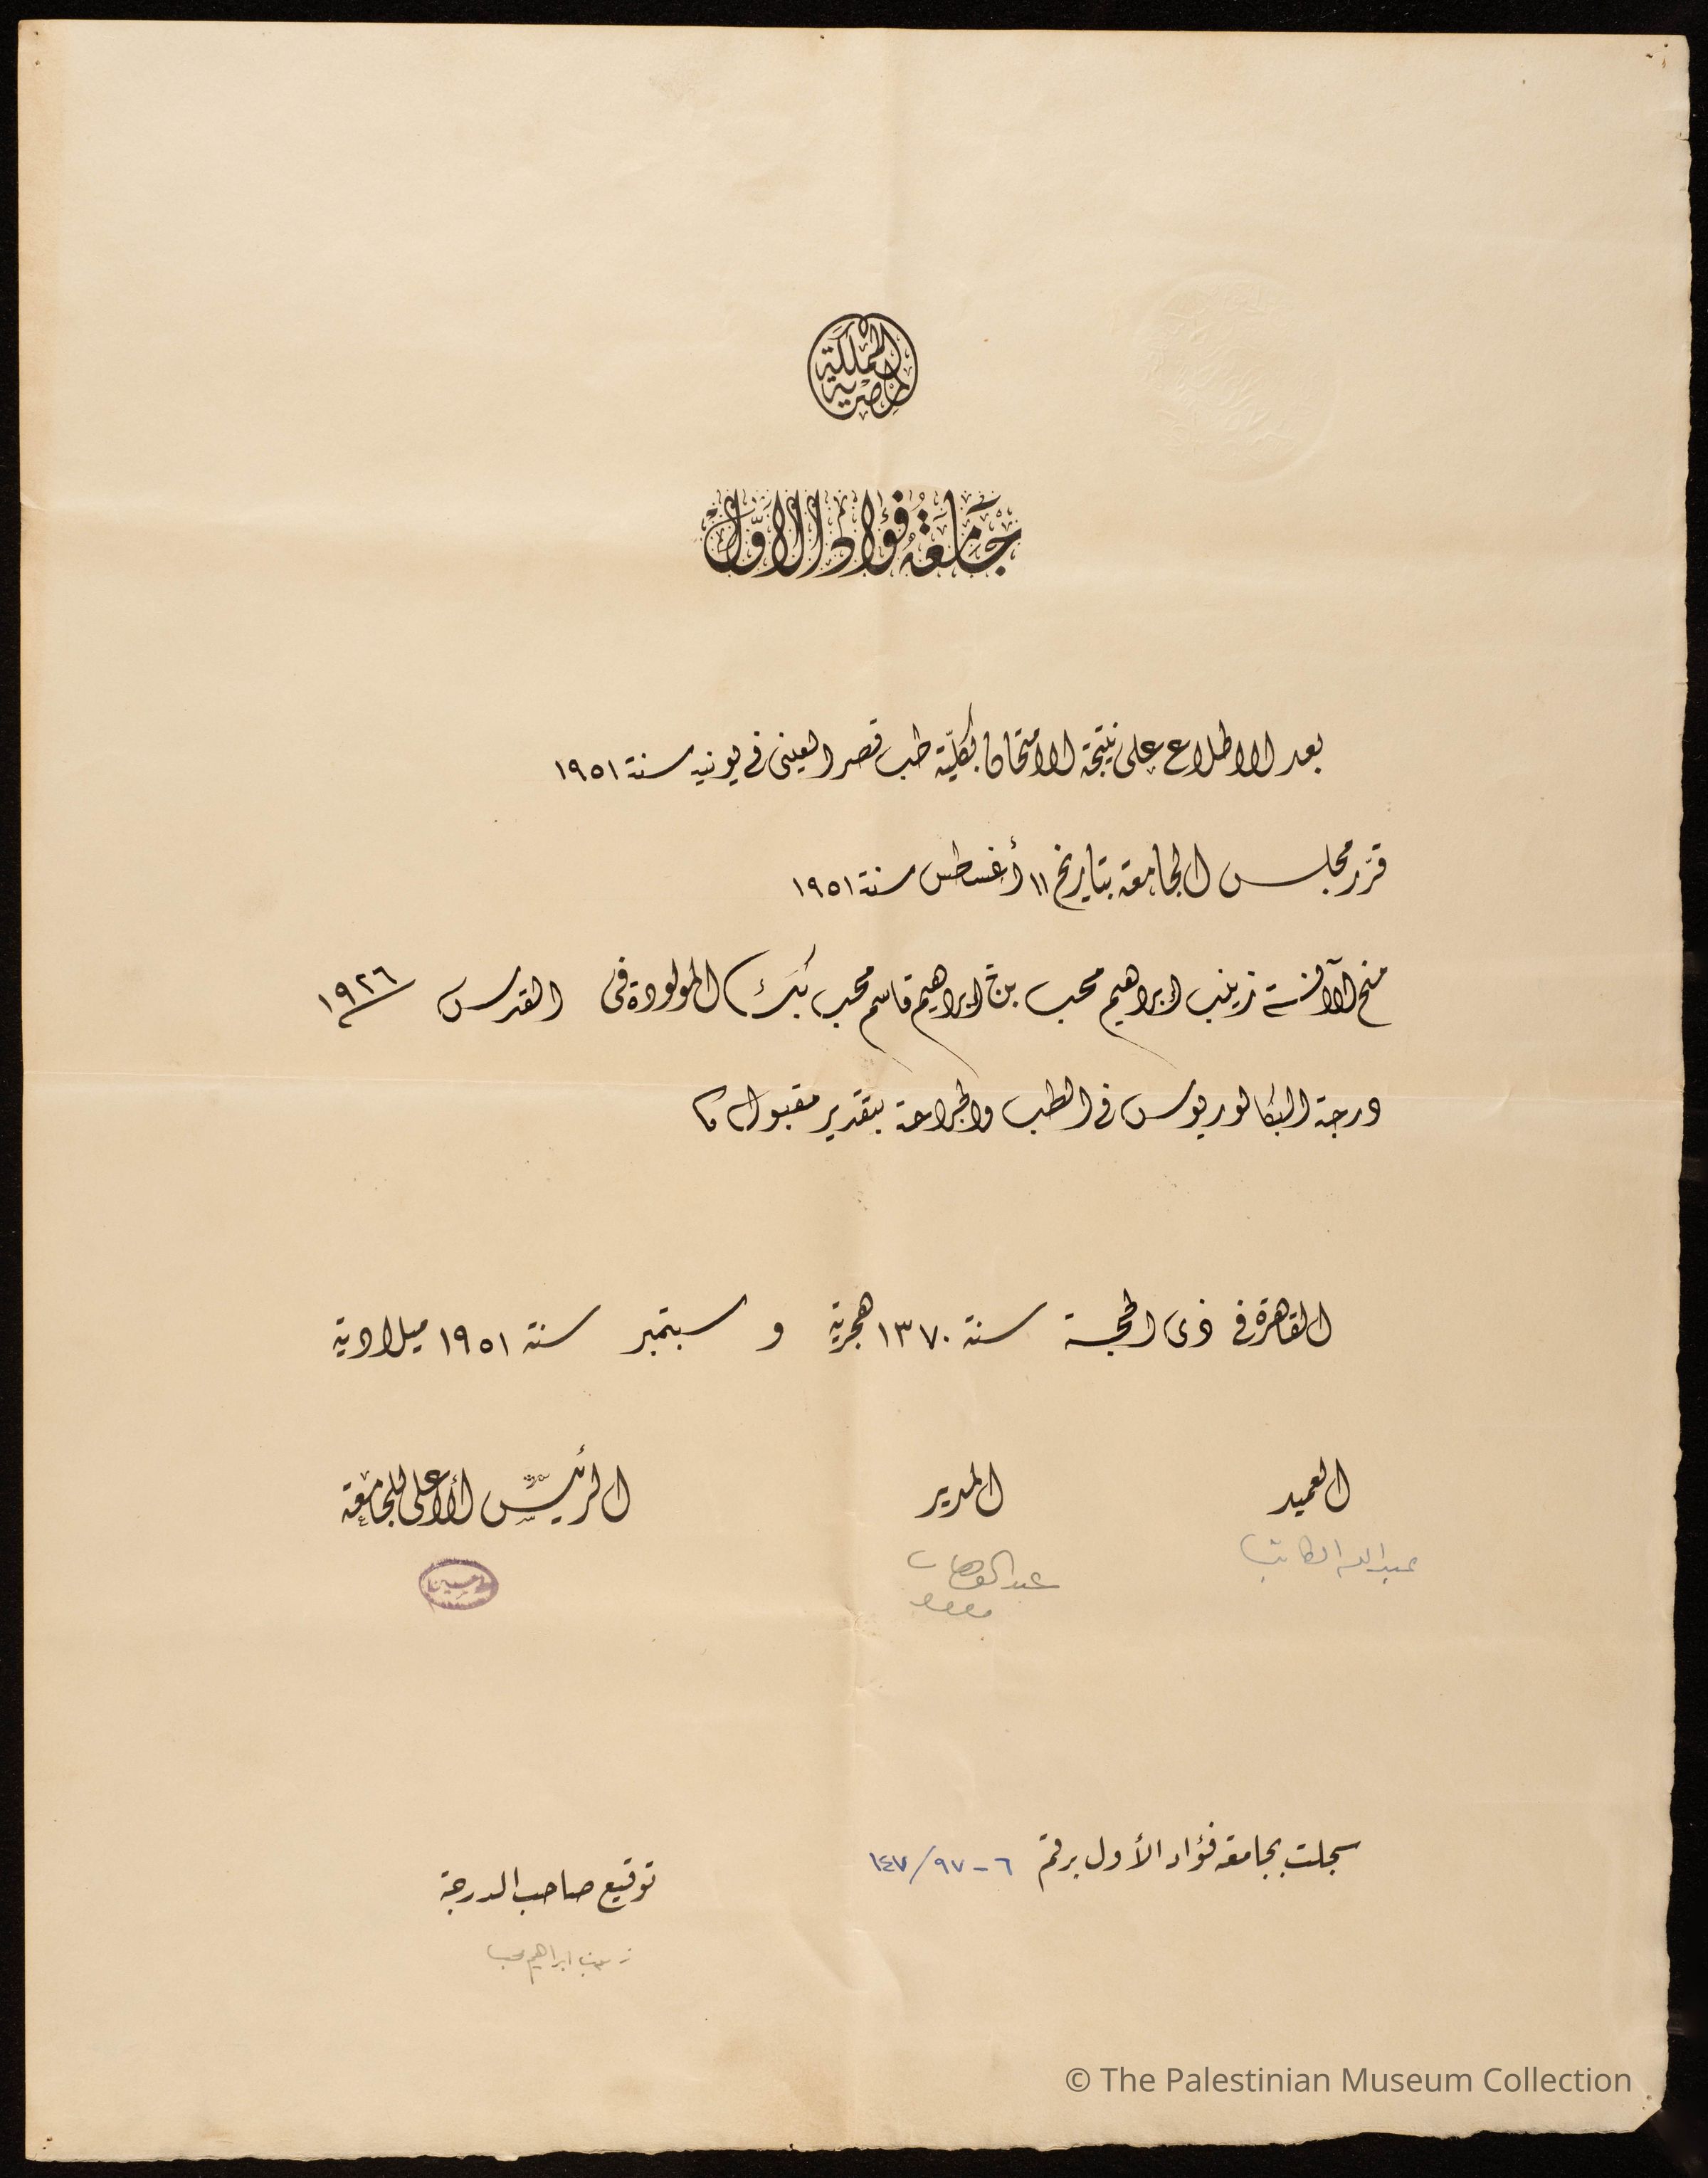 المملكة
المصرية
جامعة فؤاد الأول
بعد الاطلاع على نتيجة الامتحان بكلية طب قصر العينى فى يونيه سنة ١٩٥١
قرّر مجلس الجامعة بتاريخ ١١ أغسطس سنة ١٩٥١
منح الآنسة زينب إبراهيم محب بنت إبراهيم قاسم محب بك المولودة فى القدس سنة ١٩٢٦
درجة البكالوريوس فى الطب والجراحة بتقدير مقبول
القاهرة فى ذى الحجة سنة ١٣٧٠ هجرية و سبتمبر سنة ١٩٥١ ميلادية
العميد المدير الرئيس الأعلى للجامعة
عبد الله الكاتب عبد الوهاب مورو طه حسين
سجلت بجامعة فؤاد الأول برقم ٦ - ٩٧/١٤٧
توقيع صاحب الدرجة
زينب ابراهيم محب
© The Palestinian Museum Collection